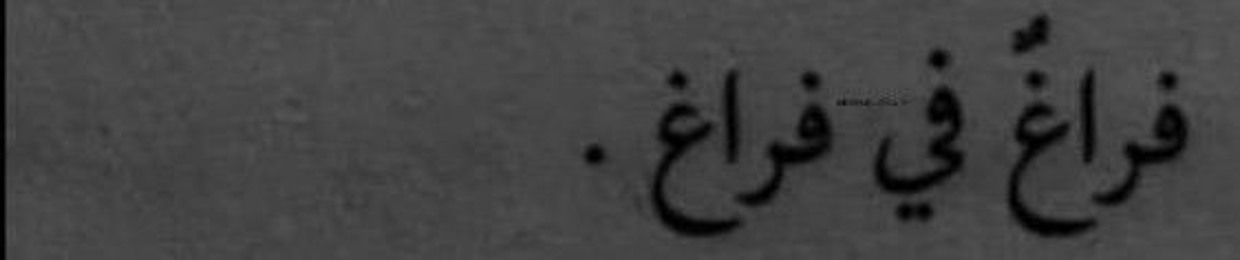 فراغٌ في فراغ .